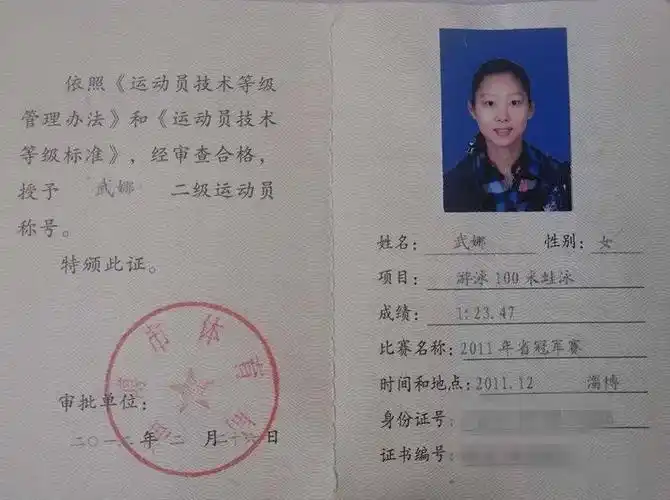 依照《运动员技术等级
管理办法》和《运动员技术
等级标准》，经审查合格，
授予 武娜 二级运动员
称号。
特颁此证。
市体育局
审批单位：
二〇一二年 二 月二十 日
姓名： 武娜 性别： 女
项目： 游泳100米蛙泳
成绩： 1:23.47
比赛名称：2011年省冠军赛
时间和地点：2011.12 淄博
身份证号：
证书编号：